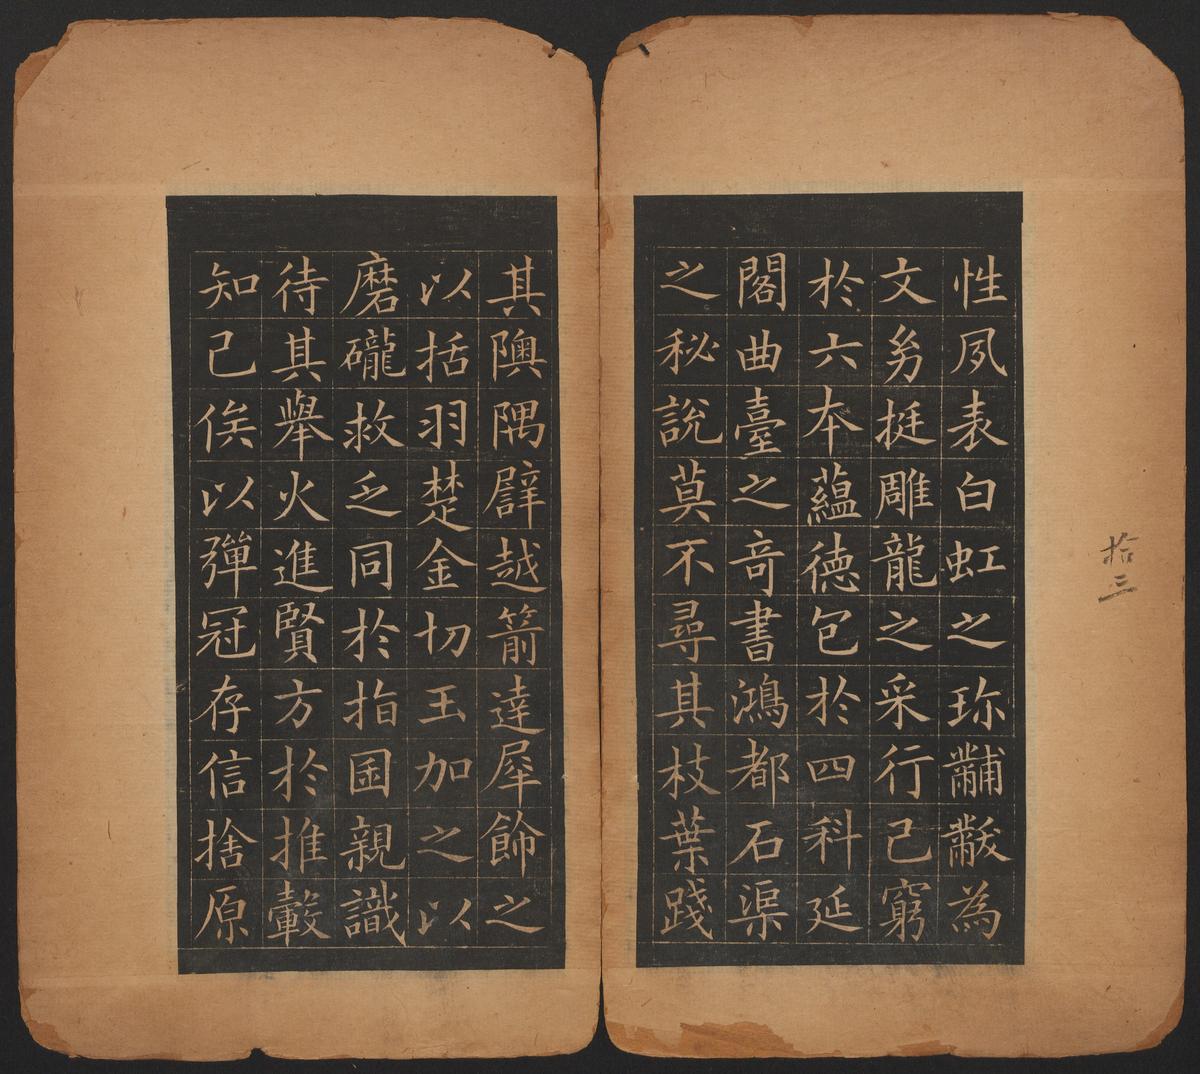 性夙表白虹之珎黼黻為
文㓜挺雕龍之采行己窮
於六本蘊德包於四科延
閣曲臺之竒書鴻都石渠
之秘說莫不尋其枝葉踐
其隩隅譬越箭達犀飾之
以括羽楚金切玉加之以
磨礲救乏同於指囷親識
待其舉火進賢方於推轂
知己俟以彈冠存信捨原
拾三